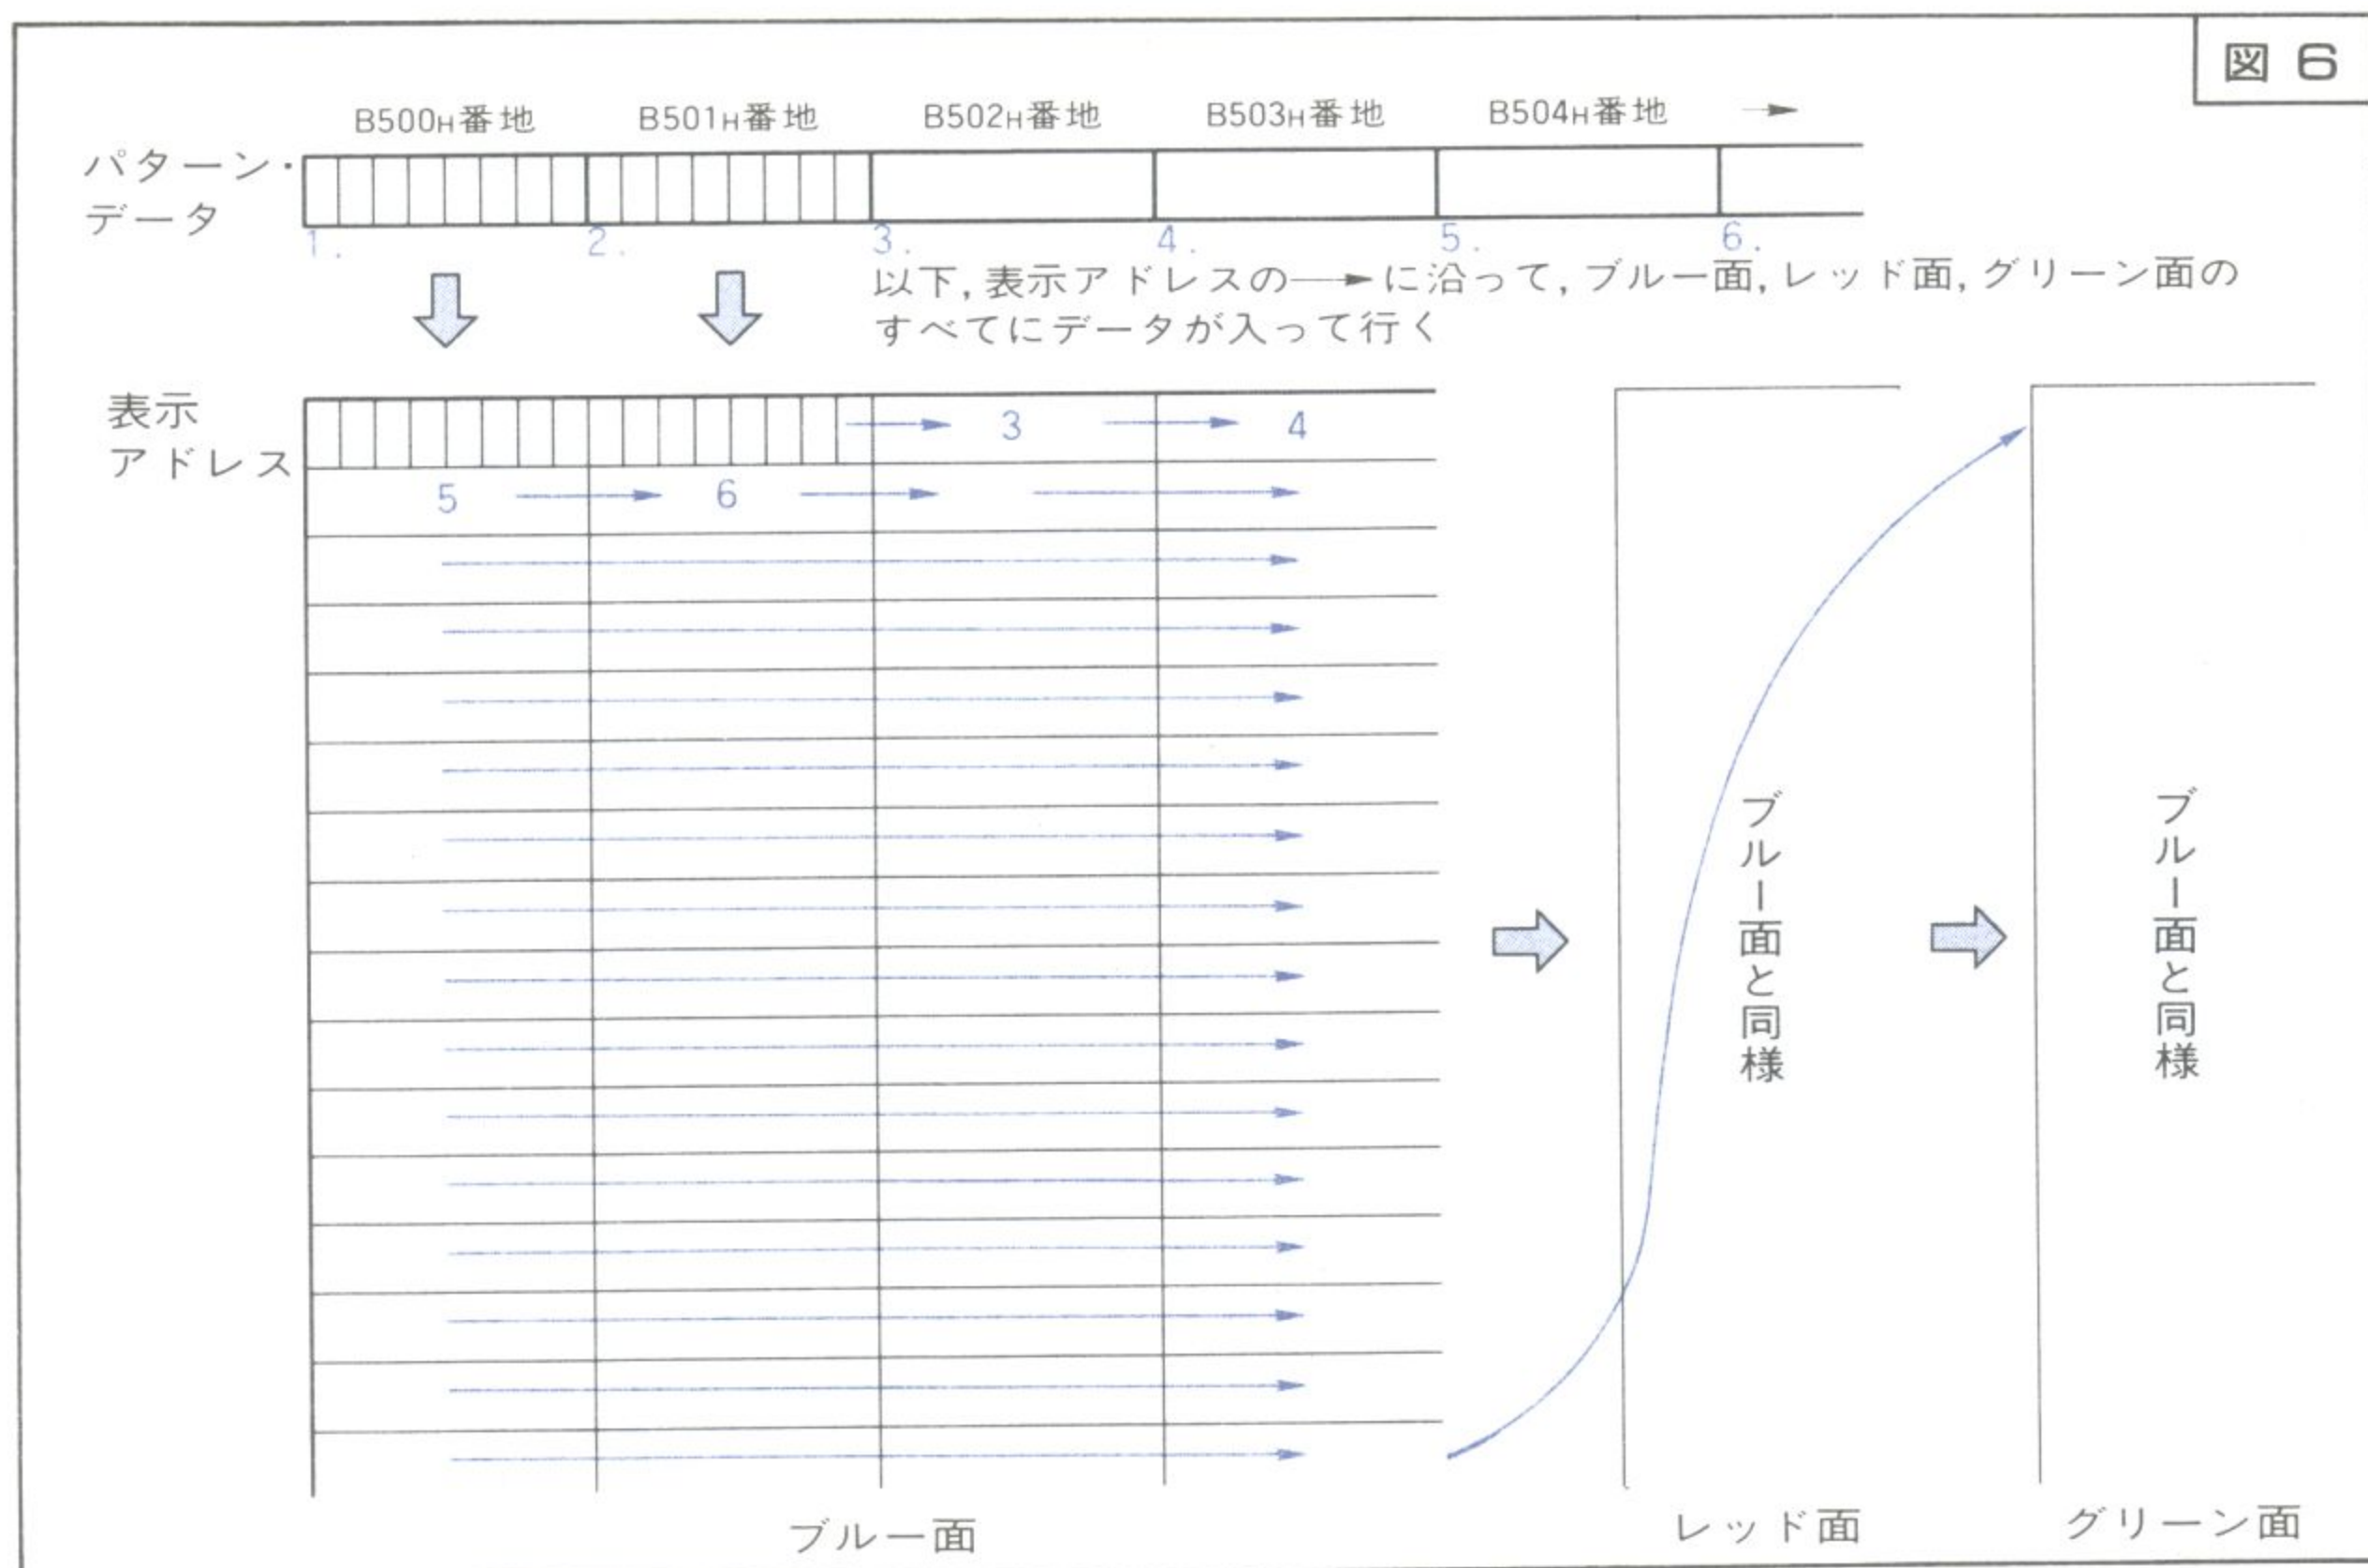 図 6
B500H番地 B501H番地 B502H番地 B503H番地 B504H番地
パターン・
データ
1. 2. 3. 4. 5. 6.
以下,表示アドレスの→に沿って,ブルー面,レッド面,グリーン面の
すべてにデータが入って行く
表示
アドレス
3 4
5 6
ブルー面と同様
ブルー面と同様
ブルー面 レッド面 グリーン面